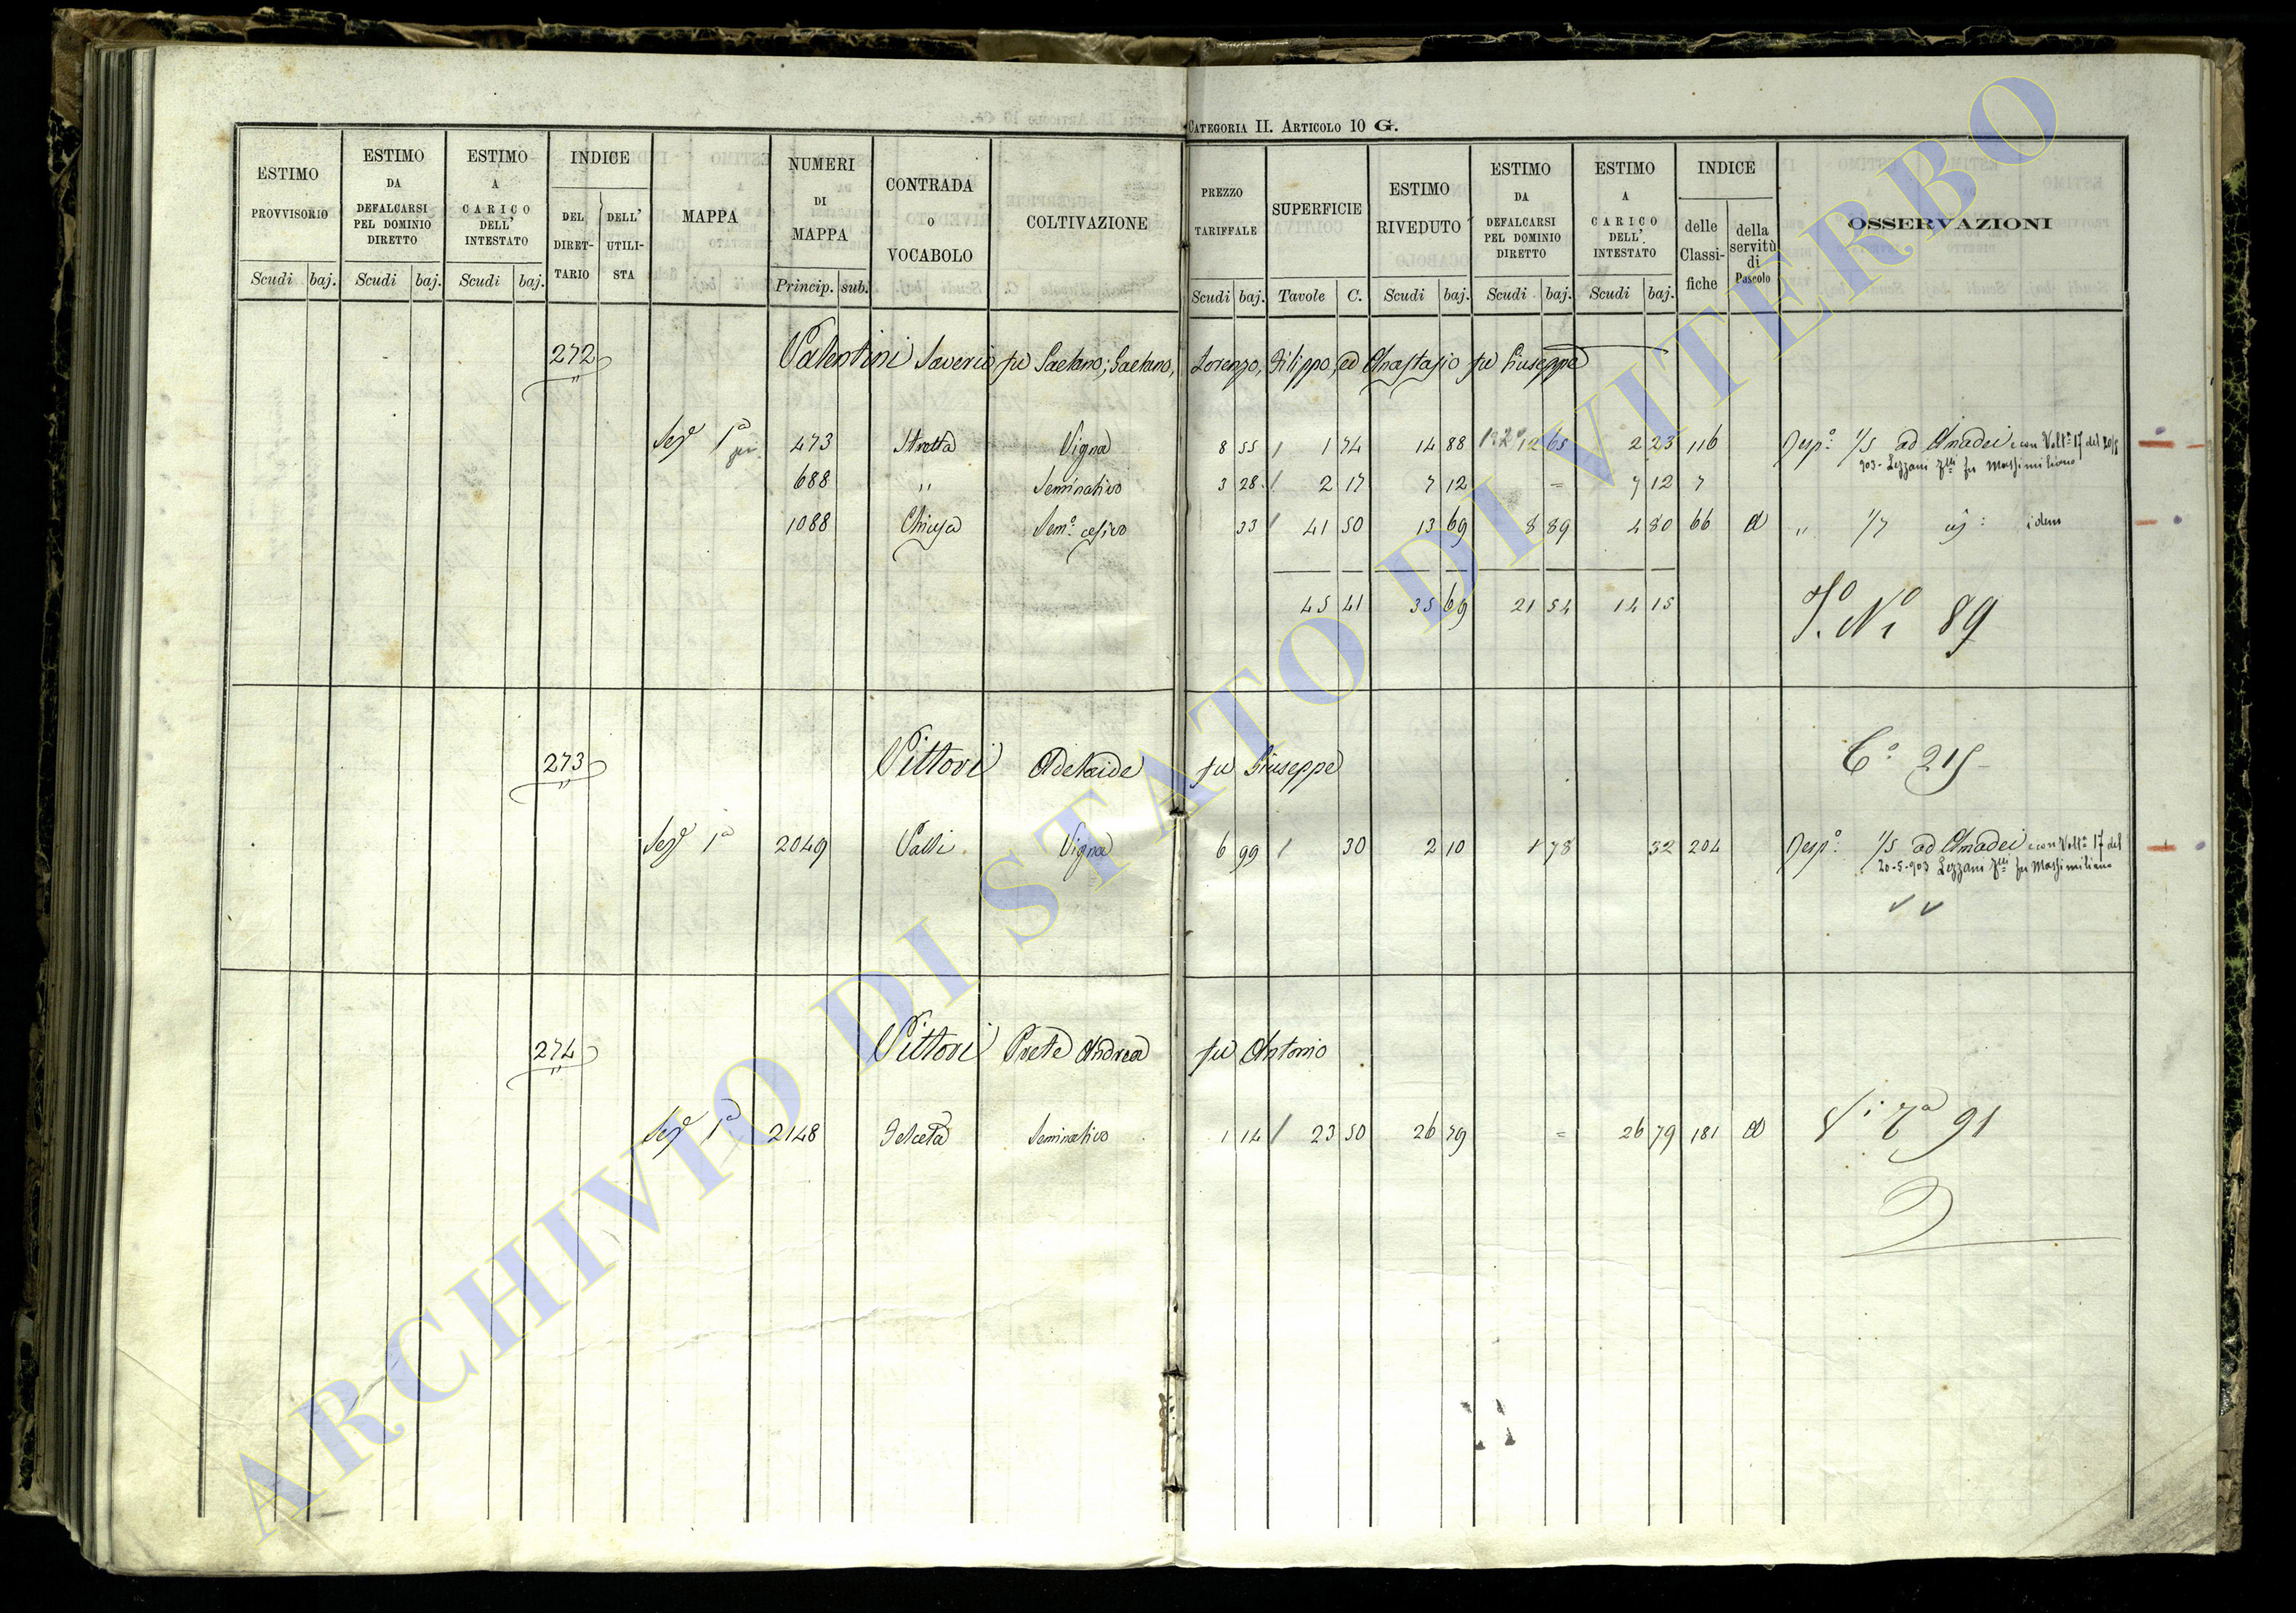 CATEGORIA II. ARTICOLO 10 G.
ESTIMO PROVVISORIO Scudi baj.
ESTIMO DA DEFALCARSI PEL DOMINIO DIRETTO Scudi baj.
ESTIMO A CARICO DELL' INTESTATO Scudi baj.
INDICE DEL DIRET-TARIO DELL' UTILI-STA
MAPPA
NUMERI DI MAPPA Princip. sub.
CONTRADA O VOCABOLO
COLTIVAZIONE
PREZZO TARIFFALE Scudi baj.
SUPERFICIE Tavole C.
ESTIMO RIVEDUTO Scudi baj.
ESTIMO DA DEFALCARSI PEL DOMINIO DIRETTO Scudi baj.
ESTIMO A CARICO DELL' INTESTATO Scudi baj.
INDICE delle Classi-fiche della servitù di Pascolo
OSSERVAZIONI
272 Valentini Saverio fu Gaetano, Gaetano, Lorenzo, Filippo, ed Anastasio fu Giuseppe
Seze 1a 473 Stretta Vigna 8 55 1 74 14 88 12 65 2 23 116 Desp: 1/5 ad Amadei e con Volta 17 del 20/5
903 - Lezzani flli fu Massimiliano
688 " Seminativo 3 28 2 17 7 12 = 7 12 7
1088 Chiusa Semo cesivo 33 41 50 13 69 8 89 4 80 66 a " 1/7 idem
45 41 35 69 21 54 14 15
No 89
273 Vittori Adelaide fu Giuseppe
Co 215
Sezе 1a 2049 Valli Vigna 6 99 30 2 10 1 78 32 204 Desp: 1/5 ad Amadei e con Volta 17 del
20-5-903 Lezzani flli fu Massimiliano
274 Vittori Prete Andrea fu Antonio
Seze 1a 2148 Felceta Seminativo 1 14 23 50 26 79 = 26 79 181 a
91
ARCHIVIO DI STATO DI VITERBO